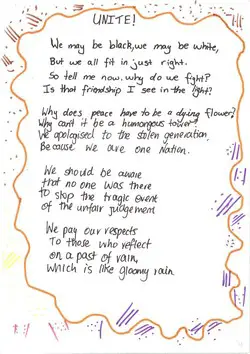 UNITE!
We may be black, we may be white,
But we all fit in just right.
So tell me now, why do we fight?
Is that friendship I see in the light?
Why does peace have to be a dying flower?
Why can't it be a humongous tower?
We apologised to the stolen generation,
Because we are one Nation.
We should be aware
that no one was there
to stop the tragic event
of the unfair judgement
We pay our respects
To those who reflect
on a past of rain,
which is like gloomy rain